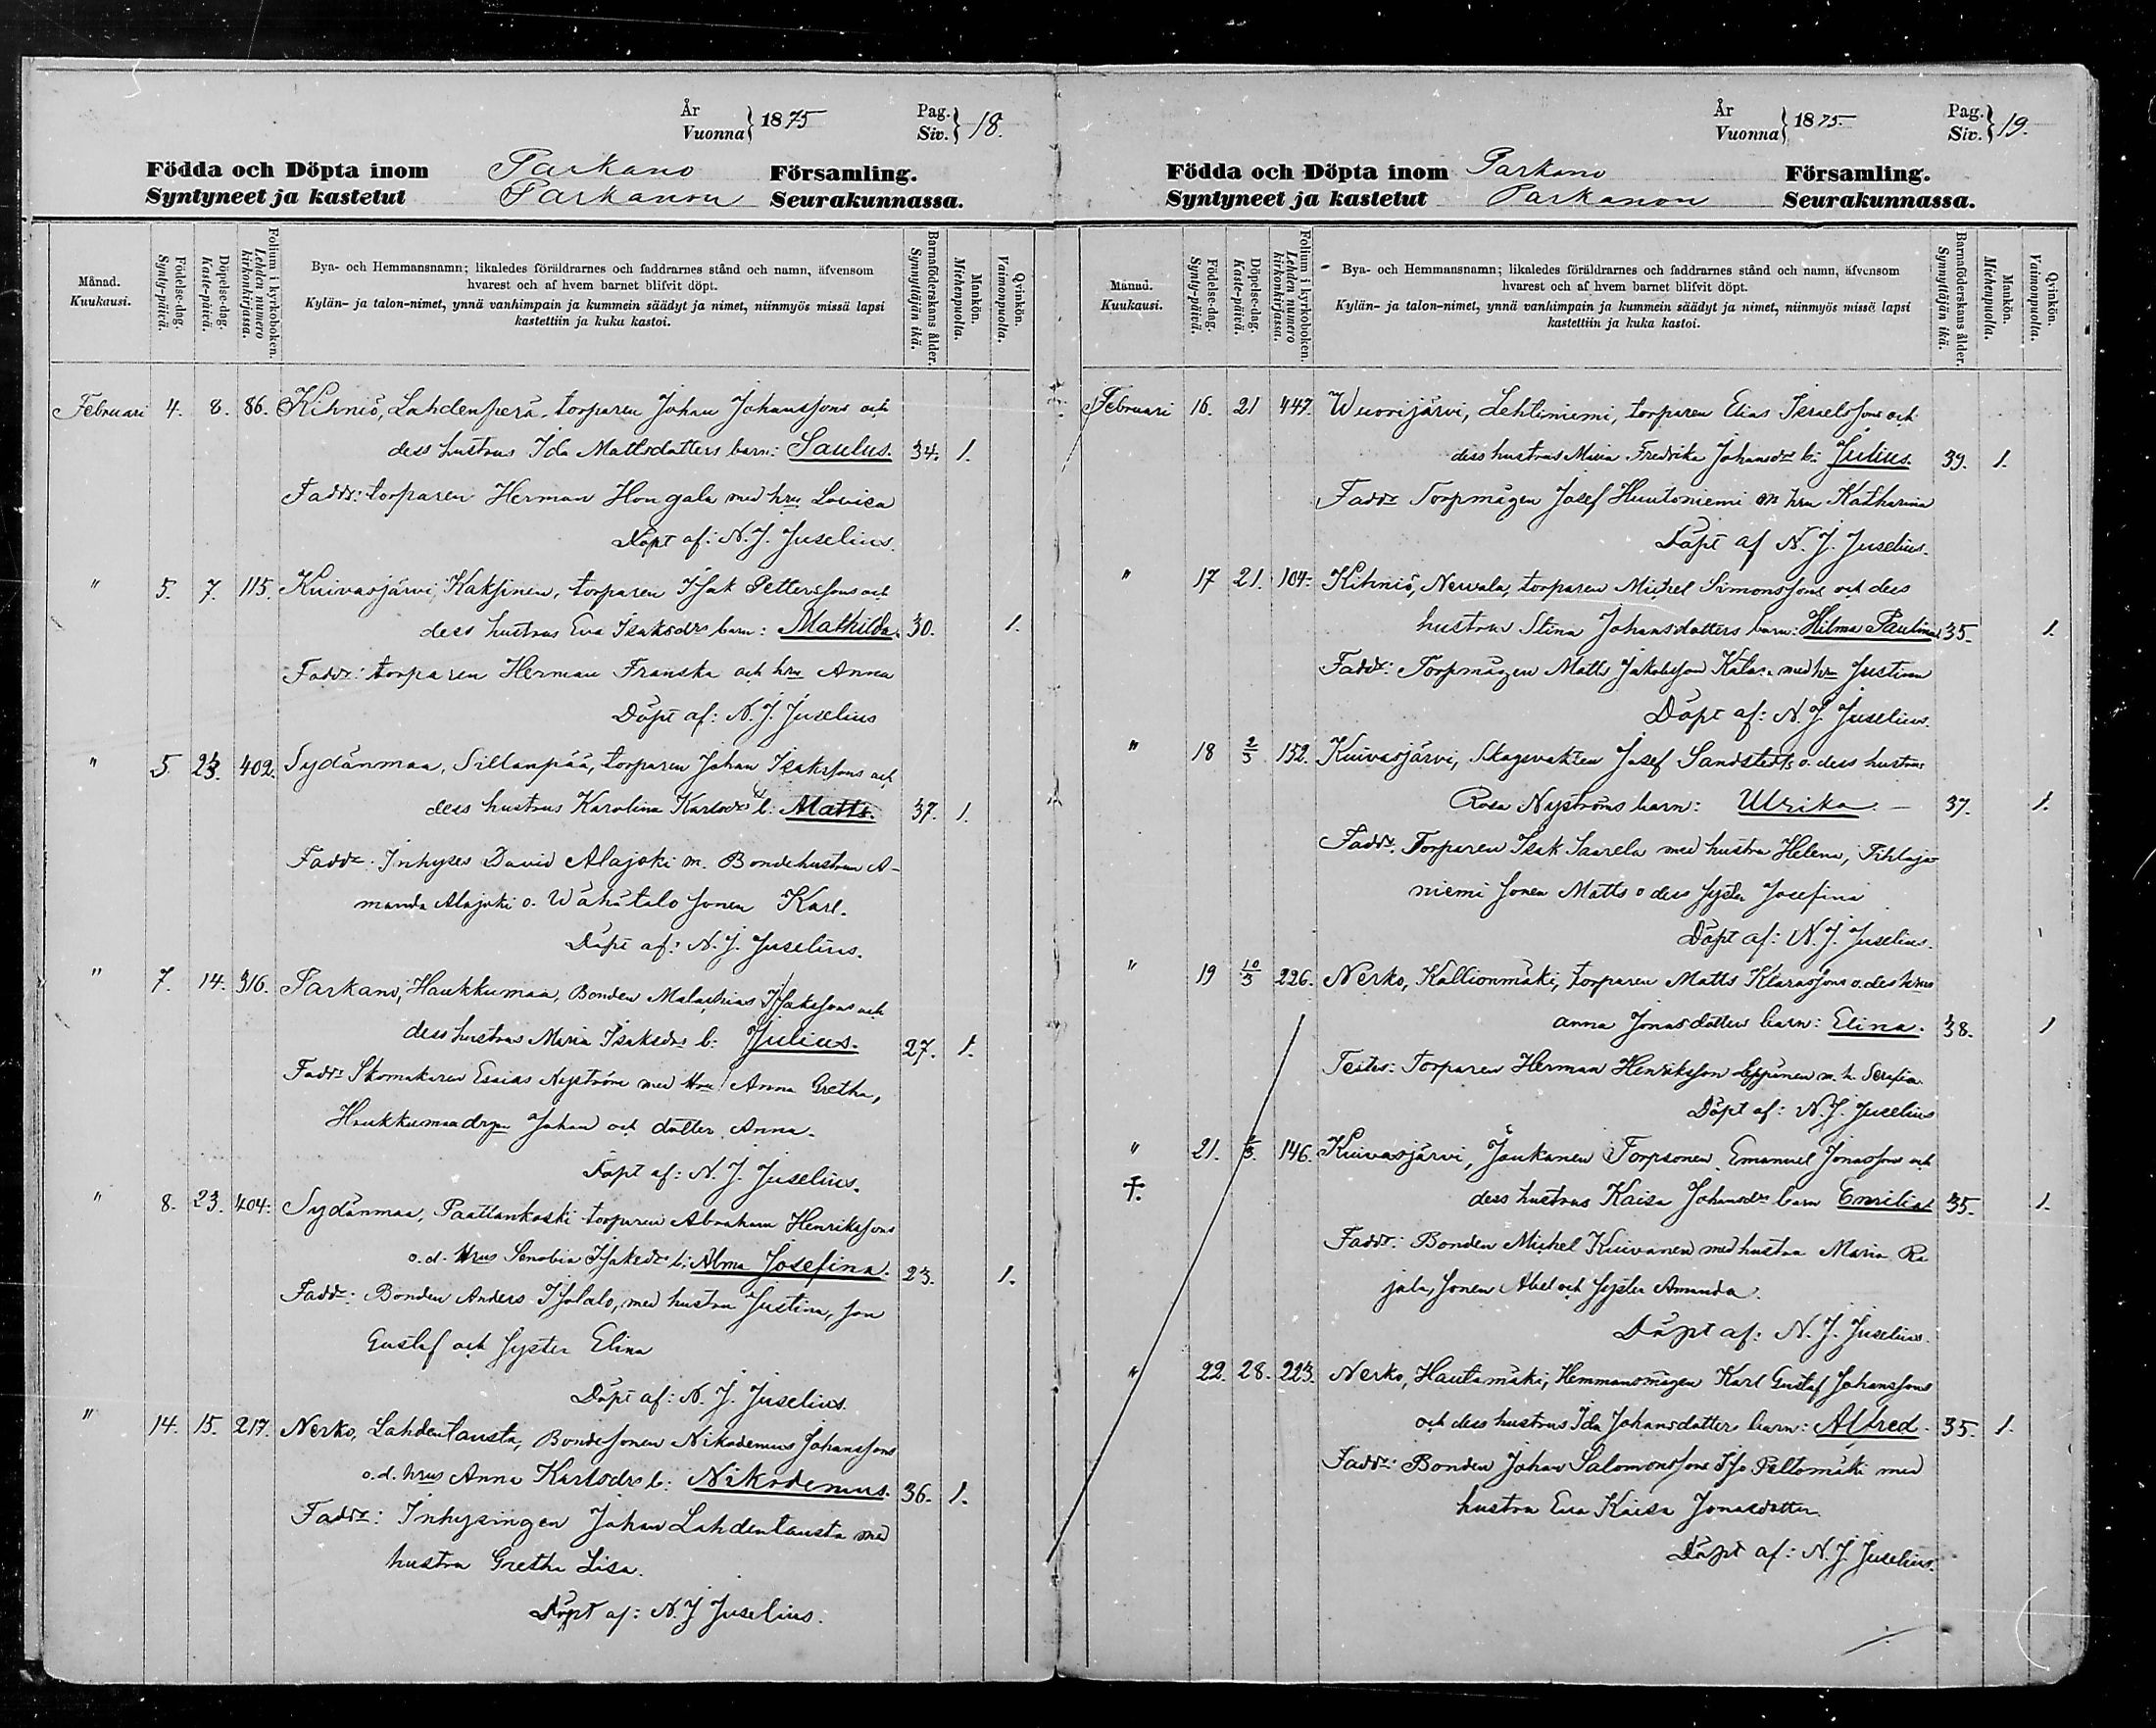 År
Vuonna } 1875
Pag.
Siv. } 18.
Födda och Döpta inom Parkano Församling.
Syntyneet ja kastetut Parkanon Seurakunnassa.
Månad.
Kuukausi.
Födelse-dag.
Synty-päivä.
Döpelse-dag.
Kaste-päivä.
Folium i kyrkoboken.
Lehden numero
kirkonkirjassa.
Bya- och Hemmansnamn; likaledes föräldrarnes och faddrarnes stånd och namn, äfvensom
hvarest och af hvem barnet blifvit döpt.
Kylän- ja talon-nimet, ynnä vanhimpain ja kummein säädyt ja nimet, niinmyös missä lapsi
kastettiin ja kuka kastoi.
Barnaföderskans ålder.
Synnyttäjän ikä.
Mankön.
Miehenpuolla.
Qvinkön.
Vaimonpuolla.
Februari 4. 8. 86. Kihniö, Lahdenperä, torparen Johan Johanssons och
dess hustrus Ida Mattsdotters barn: Saulus. 34. 1.
Faddr: torparen Herman Hongala med hru Lovisa
Döpt af: N. J. Juselius.
" 5. 7. 115. Kuivasjärvi, Kaksinen, torparen Isak Petterssons och
dess hustrus Eva Isaksdrs barn: Mathilda. 30. 1.
Faddr: torparen Herman Franska och hru Anna
Döpt af: N. J. Juselius
" 5. 23. 402. Sydänmaa, Sillanpää, torparen Johan Isakssons och
dess hustrus Karolina Karlsdrs b: Matts. 37. 1.
Faddr: Inhyses David Alajoki m. Bondehustrun A-
manda Alajoki o. Wähätalo sonen Karl.
Döpt af: N. J. Juselius.
" 7. 14. 316. Parkano, Haukkumaa, Bonden Malachias Isakssons och
dess hustrus Maria Isaksdrs b: Julius. 27. 1.
Faddr: Skomakaren Esaias Nyström med Hru Anna Gretha,
Haukkumaa Johan och dotter Anna.
Döpt af: N. J. Juselius.
" 8. 23. 404. Sydänmaa, Paattankoski torparen Abraham Henrikssons
o. d. Hrus Senobia Isaksdr b: Alma Josefina. 23. 1.
Faddr: Bonden Anders Isotalo, med hustru Justina, son
Gustaf och syster Elina
Döpt af: N. J. Juselius.
" 14. 15. 217. Nerko, Lahdentausta, Bondesonen Nikodemus Johanssons
o. d. hrus Anna Karlsdrs b: Nikodemus. 36. 1.
Faddr: Inhysingen Johan Lahdentausta med
hustru Gretha Lisa.
Döpt af: N. J Juselius.
År
Vuonna } 1875.
Pag.
Siv. } 19.
Födda och Döpta inom Parkano Församling.
Syntyneet ja kastetut Parkanon Seurakunnassa.
Månad.
Kuukausi.
Födelse-dag.
Synty-päivä.
Döpelse-dag.
Kaste-päivä.
Folium i kyrkoboken.
Lehden numero
kirkonkirjassa.
Bya- och Hemmansnamn; likaledes föräldrarnes och faddrarnes stånd och namn, äfvensom
hvarest och af hvem barnet blifvit döpt.
Kylän- ja talon-nimet, ynnä vanhimpain ja kummein säädyt ja nimet, niinmyös missä lapsi
kastettiin ja kuka kastoi.
Barnaföderskans ålder.
Synnyttäjän ikä.
Mankön.
Miehenpuolla.
Qvinkön.
Vaimonpuolla.
Februari 16. 21 447. Wuorijärvi, Lehtiniemi, torparen Elias Israelssons och
dess hustrus Maria Fredrika Johansdrs b: Julius. 39. 1.
Faddr Torpmågen Josef Huutoniemi m hru Katharina
Döpt af N. J. Juselius.
" 17 21. 104. Kihniö, Nervala, torparen Michel Simonssons och dess
hustrus Stina Johansdotters barn: Hilma Paulina 35. 1.
Faddr: Torpmågen Matts Jakobsson med hru Justina
Döpt af: N. J. Juselius.
" 18 2/3 152. Kuivasjärvi, Skogsvakten Josef Sandstedts o. dess hustrus
Rosa Nyströms barn: Ulrika. — 37. 1.
Faddr. Torparen Isak Saarela med hustru Helena, Pihlaja-
niemi sonen Matts o dess syster Josefina
Döpt af: N. J. Juselius.
" 19 10/3 226. Nerko, Kallionmäki, torparen Matts Klarassons o. des hrus
Anna Jonasdotters barn: Elina. 38. 1
Testes: Torparen Herman Henriksson Leppinen m. h. Serafia
Döpt af: N. J. Juselius
" 21. 146. Kuivasjärvi, Joukanen Torpsonen Emanuel Jonassons och
†. dess hustrus Kaisa Johansdrs barn Emilia 35. 1.
Faddr: Bonden Michel Kuivanen med hustru Maria, Ra
jala, sonen Abel och syster Amanda.
Döpt af: N. J. Juselius.
" 22. 28. 223. Nerko, Hautamäki, Hemmansmågen Karl Gustaf Johanssons
och dess hustrus Ida Johansdotters barn: Alfred. 35. 1.
Faddr: Bonden Johan Salomonssons Iso Peltomäki med
hustru Eva Kaisa Jonasdotter
Döpt af: N. J. Juselius.